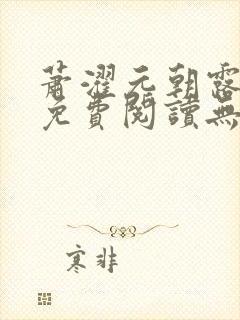 蕭濯元朝露
免費閱讀無
寒非